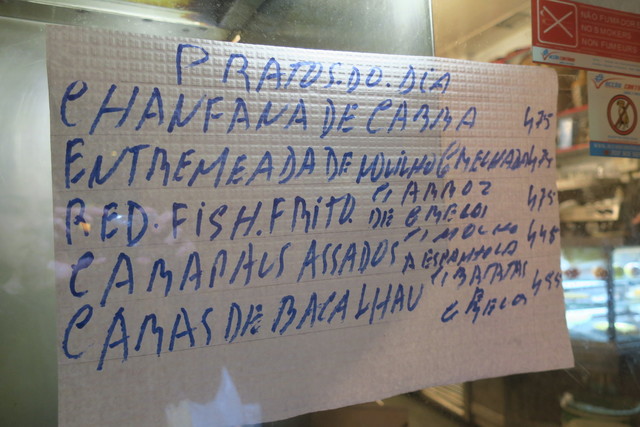 PRATOS.DO.DIA
CHANFANA DE CABRA 475
ENTREMEADA DE NOVILHO GRELHADA 475
RED.FISH.FRITO. C/ ARROZ DE GRELOS 475
CARAPAUS ASSADOS C/ MOLHO A ESPANHOLA 445
CARAS DE BACALHAU C/ BATATAS E GRELOS 455
NÃO FUMADORES
NO SMOKERS
NON FUMEURS